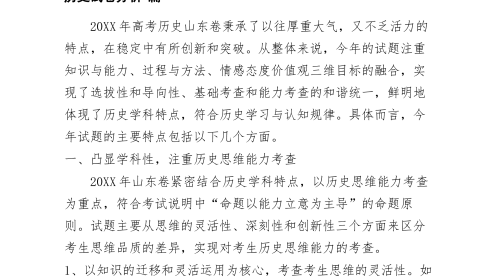 20XX 年高考历史山东卷秉承了以往厚重大气，又不乏活力的
特点，在稳定中有所创新和突破。从整体来说，今年的试题注重
知识与能力、过程与方法、情感态度价值观三维目标的融合，实
现了选拔性和导向性、基础考查和能力考查的和谐统一，鲜明地
体现了历史学科特点，符合历史学习与认知规律。具体而言，今
年试题的主要特点包括以下几个方面。
一、凸显学科性，注重历史思维能力考查
20XX 年山东卷紧密结合历史学科特点，以历史思维能力考查
为重点，符合考试说明中“命题以能力立意为主导”的命题原
则。试题主要从思维的灵活性、深刻性和创新性三个方面来区分
考生思维品质的差异，实现对考生历史思维能力的考查。
1、以知识的迁移和灵活运用为核心，考查考生思维的灵活性。如